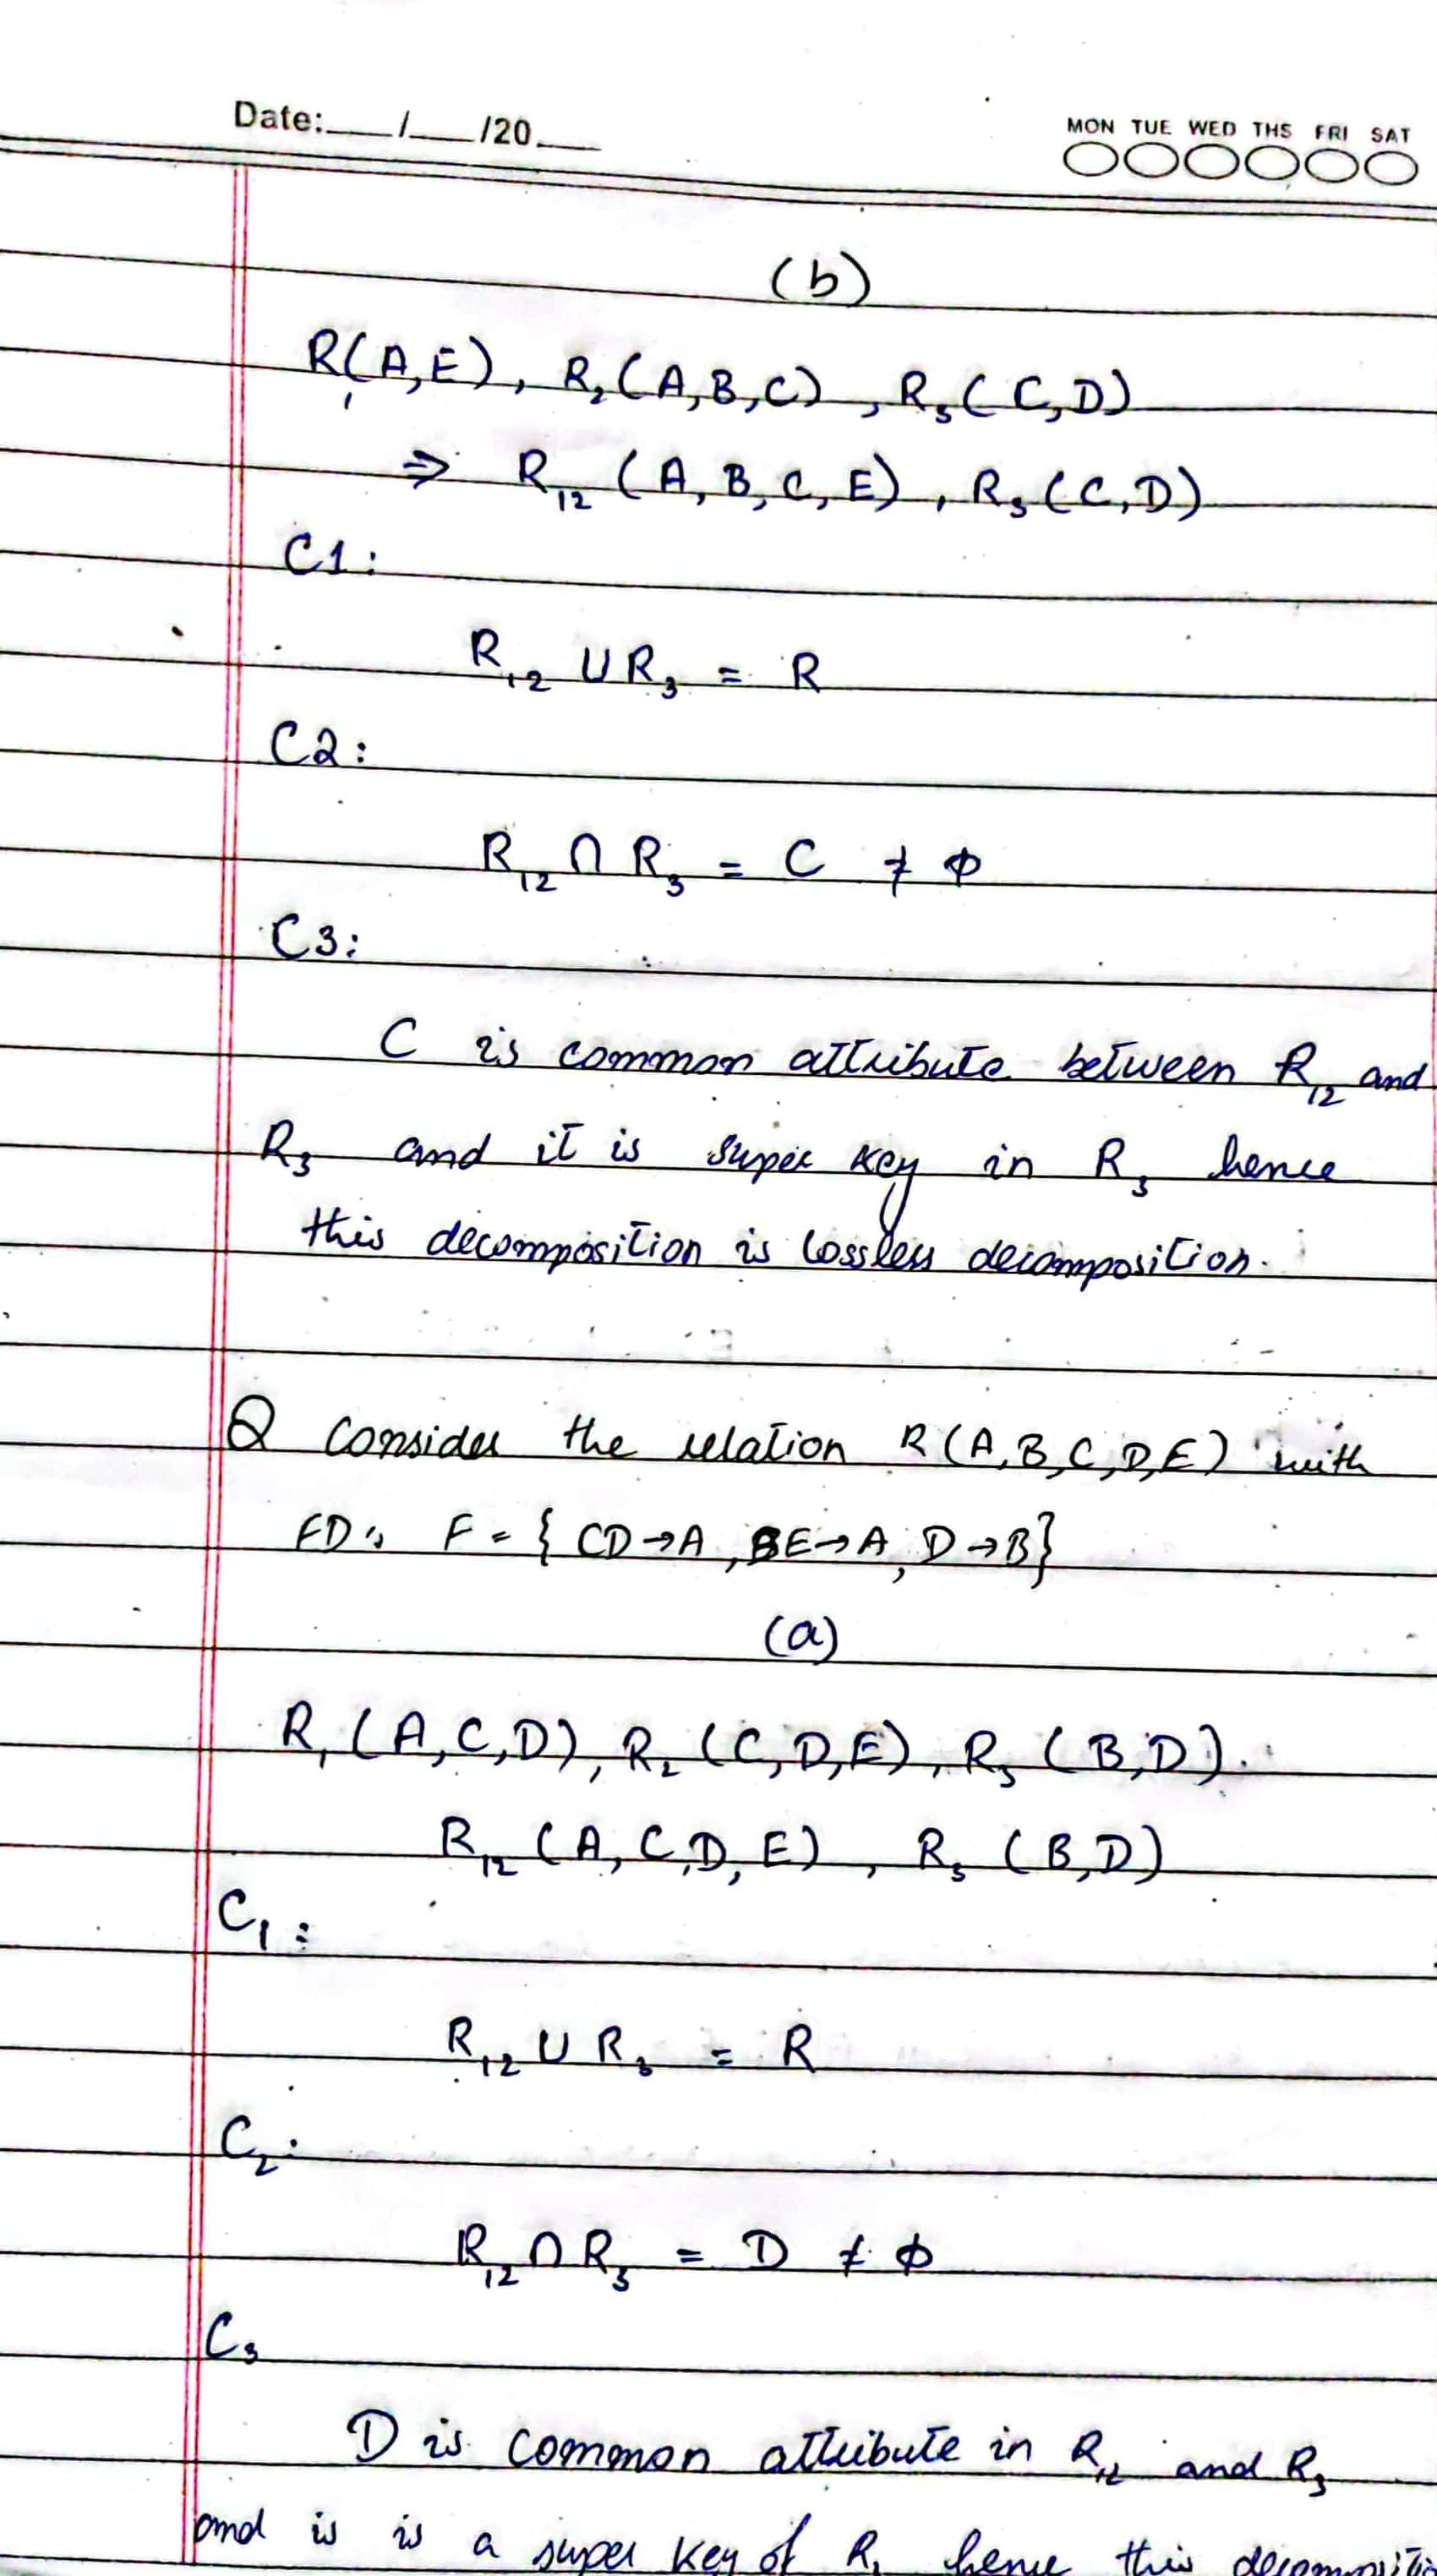 Date:___/___/20___
MON TUE WED THS FRI SAT
(b)
R₁(A,E), R₂(A,B,C), R₃(C,D)
⇒ R₁₂(A,B,C,E), R₃(C,D)
C1:
R₁₂ ∪ R₃ = R
C2:
R₁₂ ∩ R₃ = C ≠ φ
C3:
C is common attribute between R₁₂ and
R₃ and it is super key in R₃ hence
this decomposition is lossless decomposition.
Q consider the relation R(A,B,C,D,E) with
FD's F = { CD→A, BE→A, D→B}
(a)
R₁(A,C,D), R₂(C,D,E), R₃(B,D).
R₁₂(A,C,D,E), R₃(B,D)
C₁:
R₁₂ ∪ R₃ = R
C₂:
R₁₂ ∩ R₃ = D ≠ φ
C₃
D is common attribute in R₁₂ and R₃
and is is a super key of R hence this decompositio